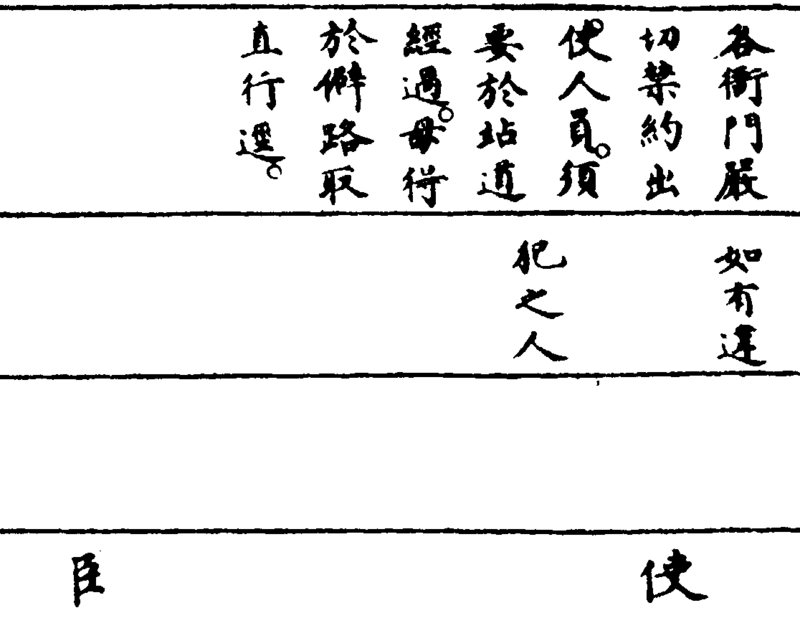 各衙門嚴
切禁約出
使人員。須
要於站道
經過。毋得
於僻路取
直行遞。
如有違
犯之人
使
臣